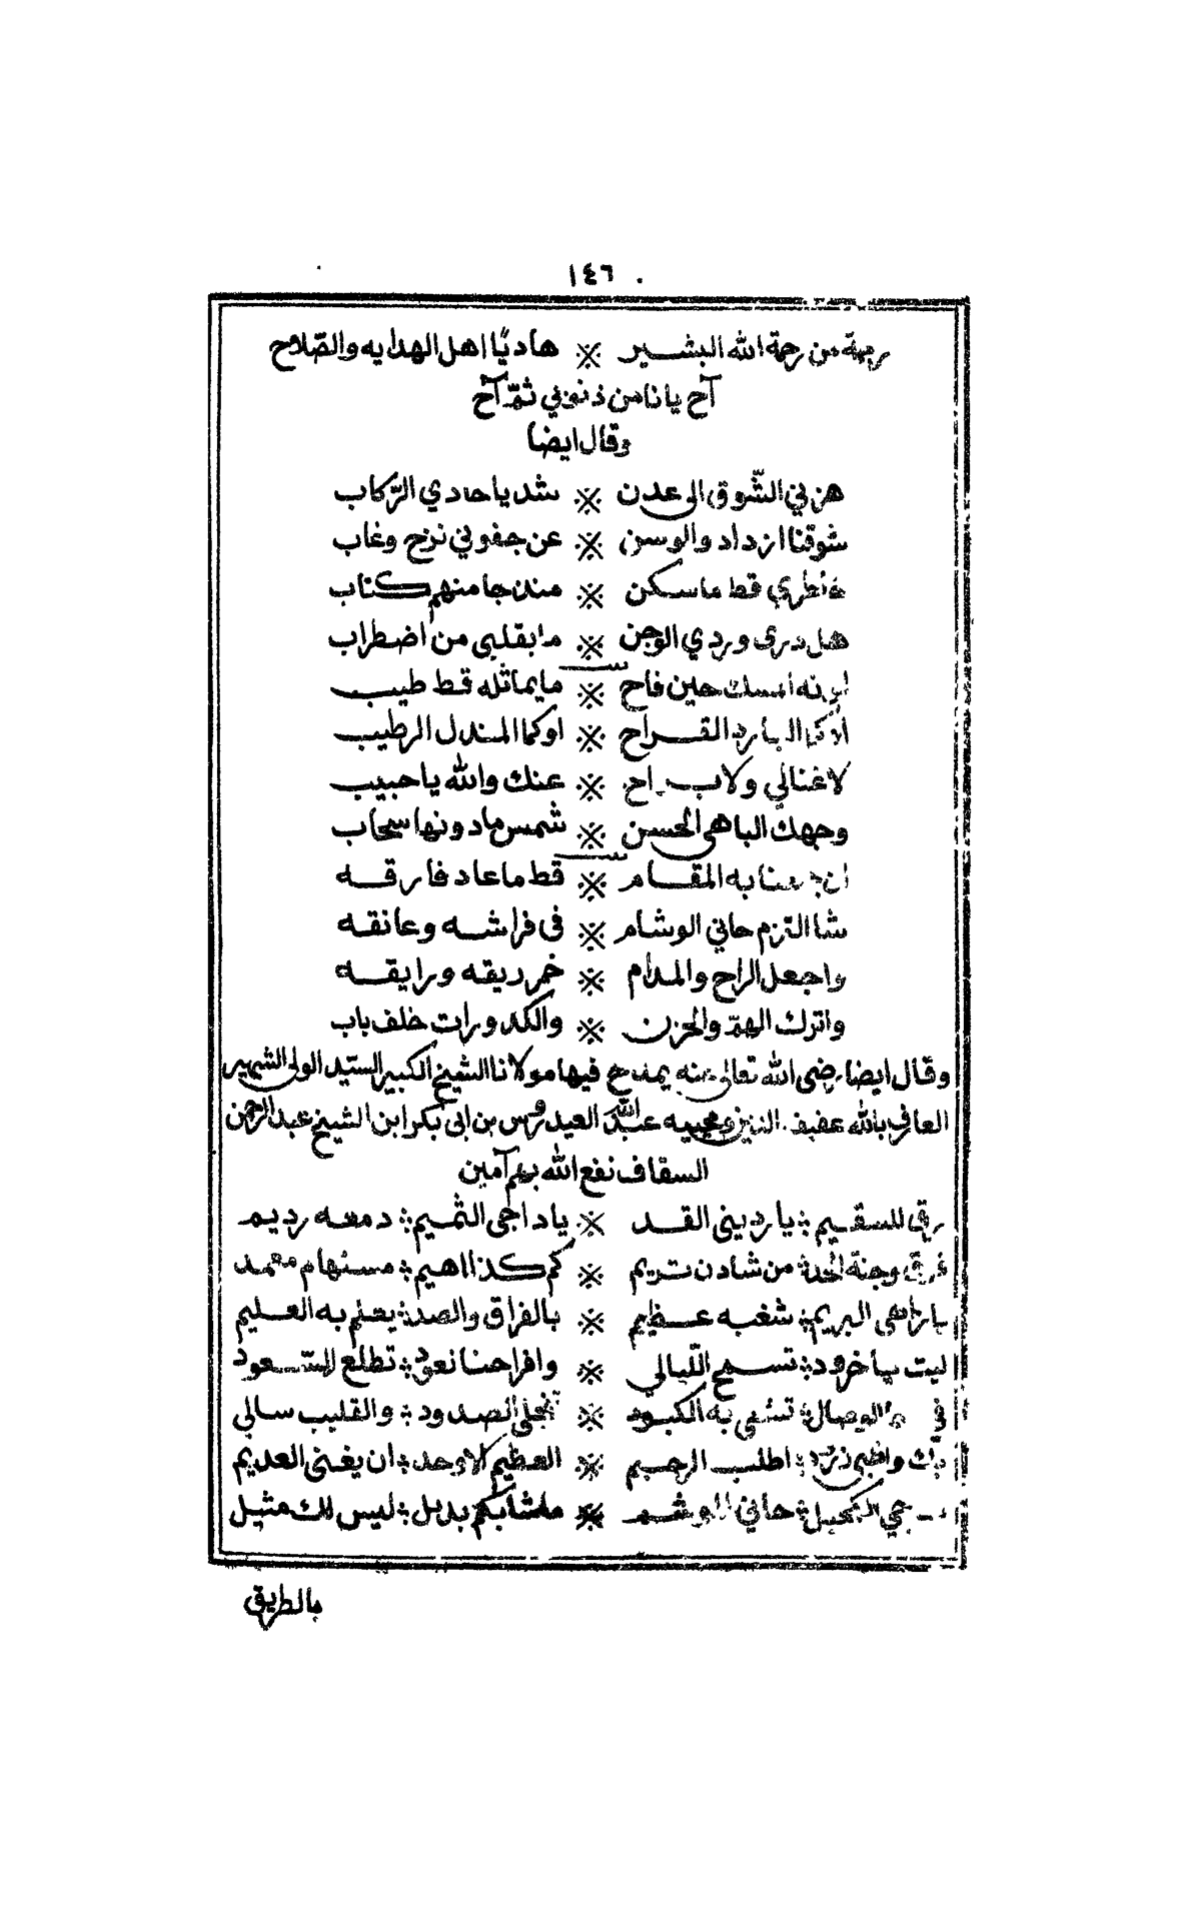 ١٤٦
رحمة من رحمة الله البشير ※ هاديًا اهل الهدايه والصّلاح
آح يا نا من ذنوبي ثمّ آح
وقال ايضا
هزني الشّوق الى عدن ※ شد يا حادي الرّكاب
شوقنا ازداد والوسن ※ عن جفوني نزح وغاب
ناظري قط ما سكن ※ منذ جا منهم كتاب
هل درى وردي الوجن ※ ما بقلبي من اضطراب
لونه المسك حين فاح ※ ما يماثله قط طيب
البارد القراح ※ او كما المندل الرطيب
لا غنالي ولا براح ※ عنك والله يا حبيب
وجهك الباهى الحسن ※ شمس ما دونها سحاب
ان جمعنا به المقام ※ قط ما عاد فارقه
شا التزم حاني الوشام ※ فى فراشه وعانقه
واجعل الراح والمدام ※ خمر ريقه ورايقه
واترك الهمّ والحزن ※ والكدورات خلف باب
وقال ايضا رضى الله تعالى عنه يمدح فيها مولانا الشيخ الكبير السيّد الولى الشهير
العارف بالله عفيف الدين ومحييه عبد الله العيدروس بن ابى بكر ابن الشيخ عبد الرحمن
السقاف نفع الله بهم آمين
رقى للسقيم ⁘ يا رديني القد ※ يا داجى الثميم ⁘ دمعه رديم
وجنة الخد ⁘ من شادن تريم ※ كم كذا اهيم ⁘ مستهام معمد
يا زاهى البريم ⁘ شغبه عظيم ※ بالفراق والصد ⁘ يعلم به العليم
ليت يا خرود ⁘ تسمح اللّيالي ※ وافراحنا تعود ⁘ تطلع السّعود
في الوصال ⁘ تشفى به الكبود ※ تنجلى الصدود ⁘ والقليب سالي
اطلب الرحيم ※ العظيم الاوحد ⁘ ان يغنى العديم
الكحيل ⁘ حاني الوشم ※ ما شا بكم بديل ⁘ ليس لك مثيل
بالطريق